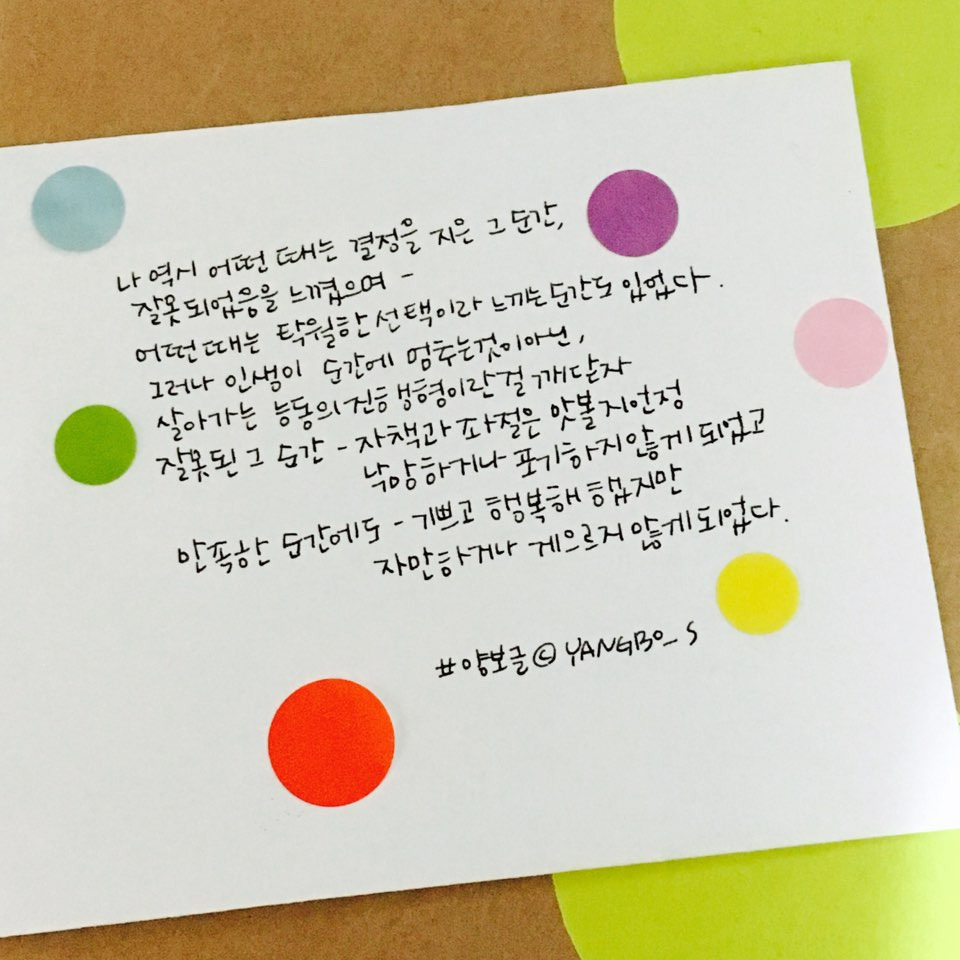 나 역시 어떤 때는 결정을 지은 그 순간,
잘못되었음을 느꼈으며 -
어떤 때는 탁월한 선택이라 느끼는 순간도 있었다.
그러나 인생이 순간에 멈추는것이아닌,
살아가는 능동의 진행형이란걸 깨닫자
잘못된 그 순간 - 자책과 좌절은 맛볼지언정
낙망하거나 포기하지않게 되었고
만족한 순간에도 - 기쁘고 행복해 했지만
자만하거나 게으르지 않게되었다.
#양보글 © YANGBO_S